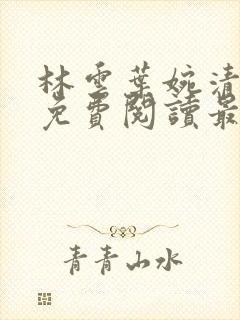 林雲葉婉清
免費閱讀最
青青山水